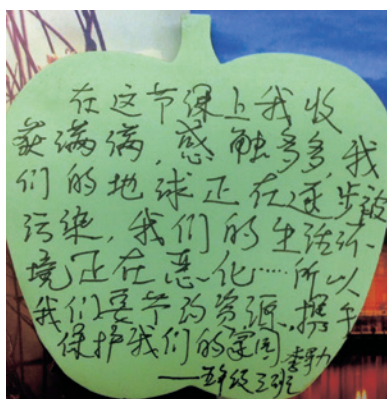 在这节课上我收
获满满,感触多多,我
们的地球正在逐步被
污染,我们的生活环
境正在恶化……所以
我们要节约资源,携手
保护我们的家园
李勤
——五年级三班